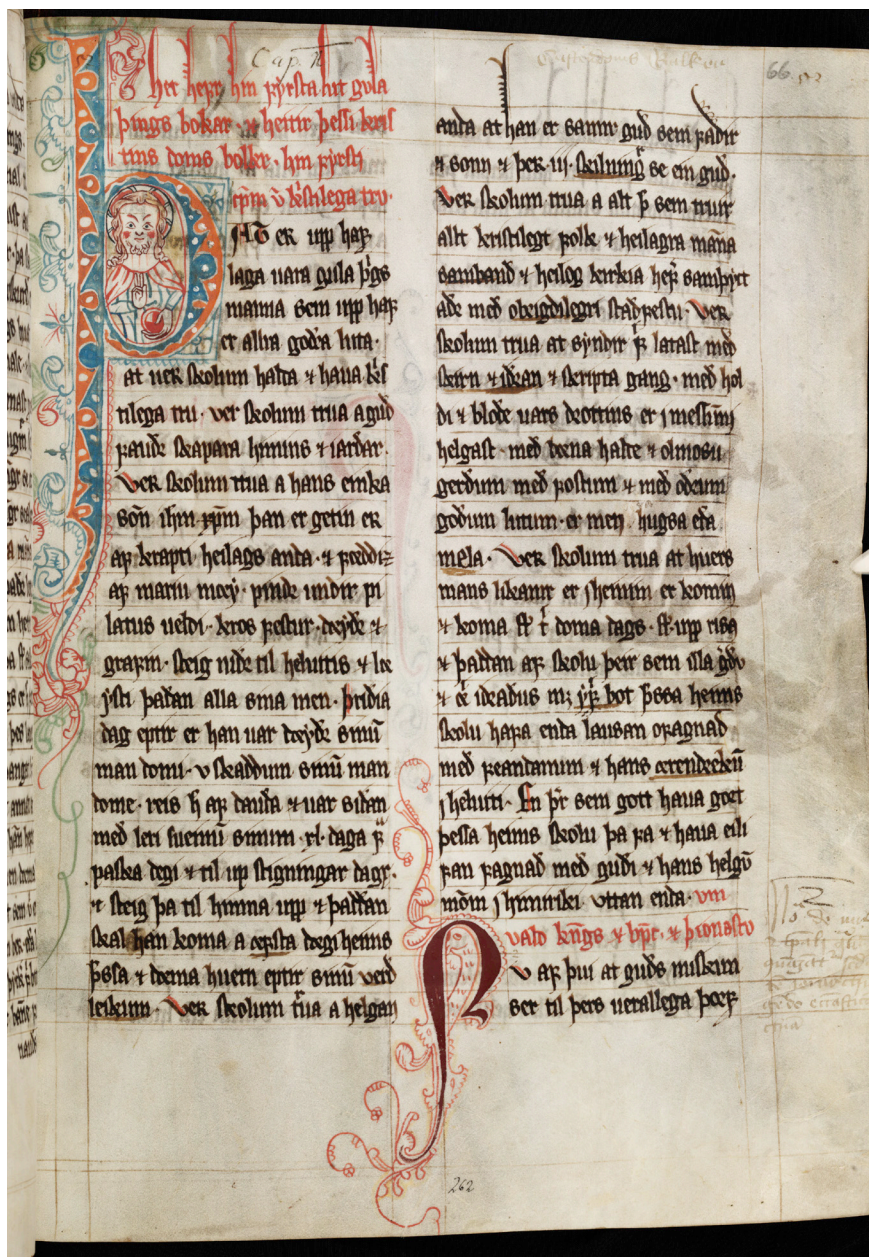 Cap. II
66.
Her hepr hin fyrsta lut gula
þings bokar ⁊ heitir þessi kris
tins doms bolkr. hin fyrsti
cpitm v kristilega tru.
ÞAT er upp haf
laga uara gula þings
manna sem upp haf
er allra godra luta.
at uer skolum halta ⁊ haua kris
tilega tru. ver skolum trua a gud
faude skapara himins ⁊ iardar.
Ver skolum trua a hans einka
son ihm xpm þan er getin er
af krapti heilags anda. ⁊ fœddiz
af mariu mœy. pinde undir pi
latus ueldi. kros festur. dœyde ⁊
grafin. steig nidr til heluitis ⁊ lœ
ysti þadan alla sina men. þridia
dag eptir er han uar dœyde sinū
man domi. v skaddum sinū man
dome. reis h af dauda ⁊ uar sidan
med leri sueinnū sinum. xl. daga fra
paska degi ⁊ til up stigningar dagr.
⁊ steig þa til himna upp ⁊ þadan
skal han koma a œfsta dœgi heims
þssa ⁊ dœma huern eptir sinū verd
leikum. Ver skolum trua a helgan
anda at han er sannr gud sem fadir
⁊ sonn ⁊ þær iij. skilning se ein gud.
Ver skolum trua a alt þ sem truir
allt kristilegt folk ⁊ heilagra mana
samband ⁊ heilog kirkia hefr samþykt
ade med obrigdilegri stadfestu. Ver
skolum trua at syndir fir latast med
skirn ⁊ idran ⁊ skripta gang. med hol
di ⁊ blode uars drottins er j messunni
helgast. med bœna halde ⁊ olmosu
gerdum med fostum ⁊ med odrum
godum lutum. er men hugsa eda
mela. Ver skolum trua at huers
mans likamr er j heimin er komin
⁊ koma skal til doma dags. skal upp risa
⁊ þadan af skolu þeir sem illa gerdu
⁊ ei idradus med yfir bot þssa heims
skolu hafa enda lausan ofagnad
med feandanum ⁊ hans œrendrekū
j heluiti. En þeir sem gott haua gort
þessa heims skolu þa fa ⁊ haua eili
fan fagnad med gudi ⁊ hans helgū
monnum j himiriki vttan enda. vm
vald kungs ⁊ bps. ⁊ þionasto
Nv af þui at guds miskunn
ser til þers uerallega þœrf
262